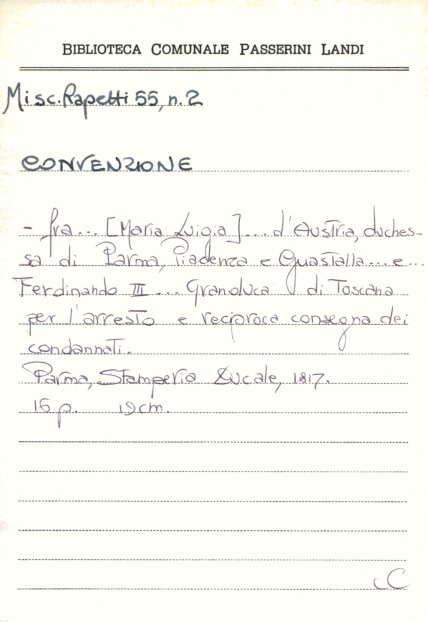 BIBLIOTECA COMUNALE PASSERINI LANDI
Misc. Rapetti 55, n. 2
CONVENZIONE
- fra... [Maria Luigia]... d'Austria, duches-
sa di Parma, Piacenza e Guastalla... e...
Ferdinando III... Granduca di Toscana
per l'arresto e reciproca consegna dei
condannati.
Parma, Stamperia Ducale, 1817.
16 p. 19 cm.
C